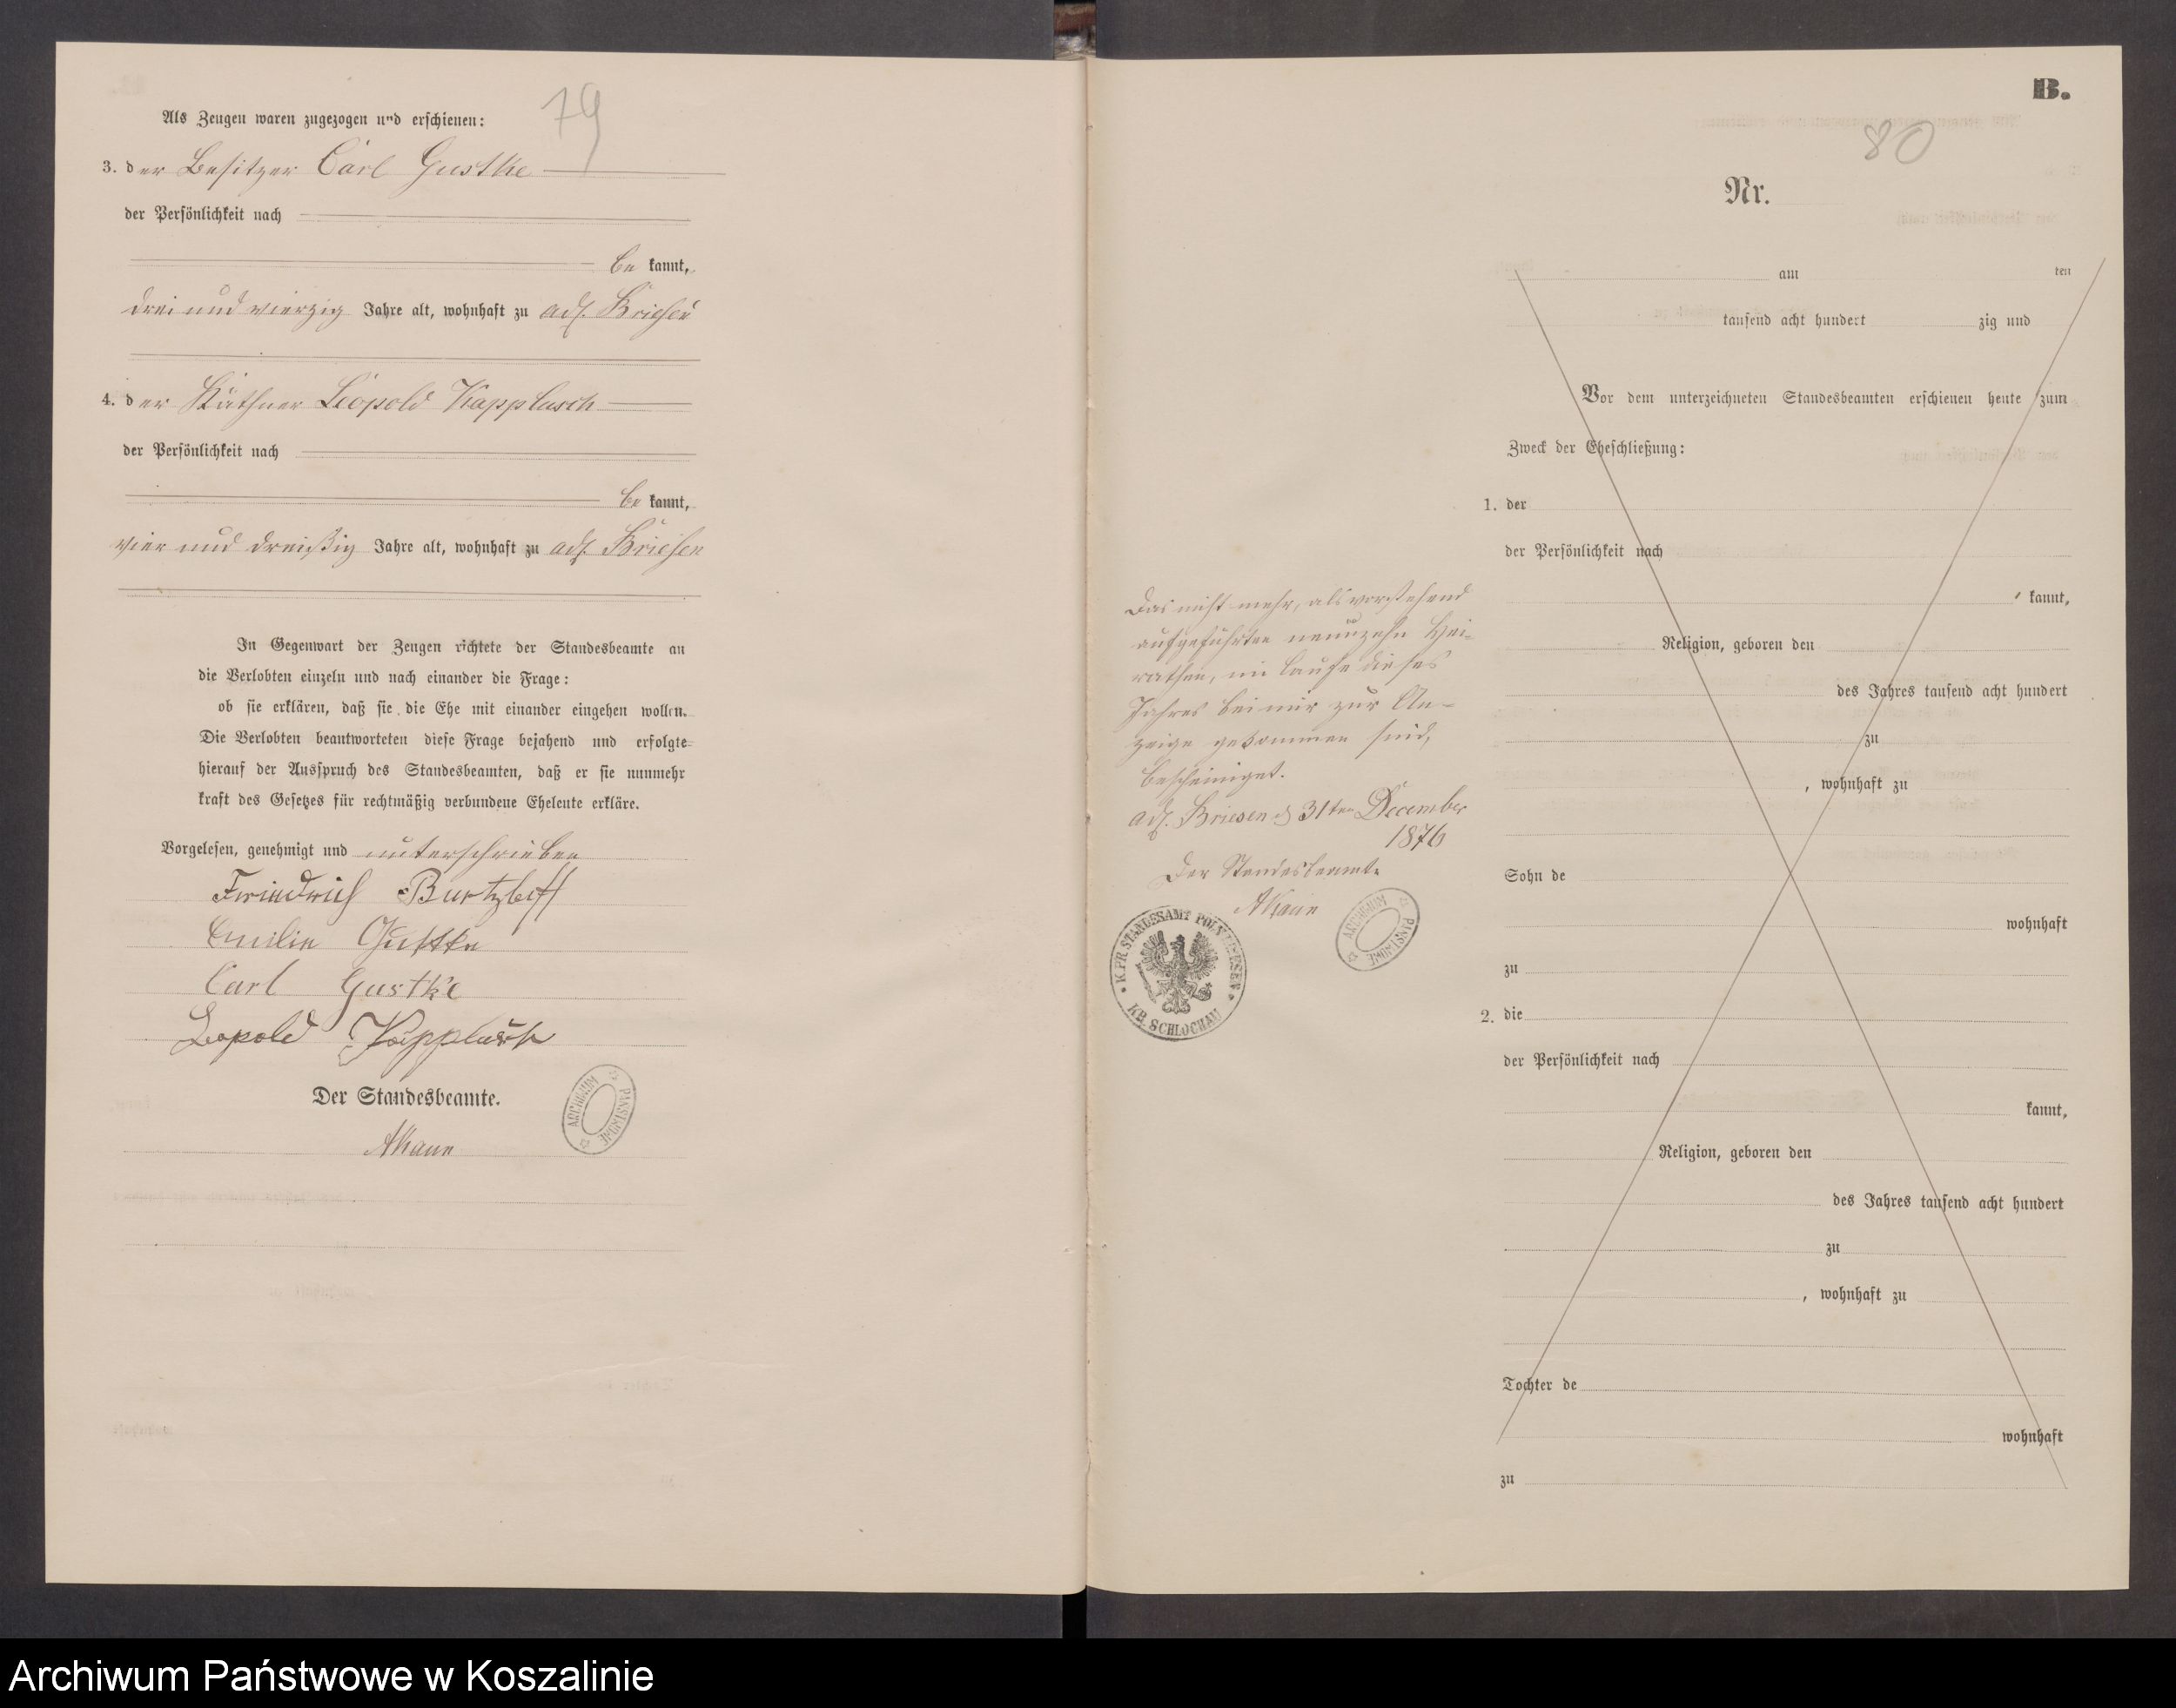 79
Als Zeugen waren zugezogen und erschienen:
3. der Besitzer Carl Gustke
der Persönlichkeit nach
be kannt,
drei und vierzig Jahre alt, wohnhaft zu adl. Briesen
4. der Käthner Leopold Kapplusch
der Persönlichkeit nach
be kannt,
vier und dreißig Jahre alt, wohnhaft zu adl. Briesen
In Gegenwart der Zeugen richtete der Standesbeamte an
die Verlobten einzeln und nach einander die Frage:
ob sie erklären, daß sie die Ehe mit einander eingehen wollen.
Die Verlobten beantworteten diese Frage bejahend und erfolgte
hierauf der Ausspruch des Standesbeamten, daß er sie nunmehr
kraft des Gesetzes für rechtmäßig verbundene Eheleute erkläre.
Vorgelesen, genehmigt und unterschrieben
Friedrich Burtzlaff
Emilie Gustke
Carl Gustke
Leopold Kapplusch
Der Standesbeamte.
ARCHIWUM PAŃSTWOWE
B.
80
Nr.
am ten
tausend acht hundert zig und
Vor dem unterzeichneten Standesbeamten erschienen heute zum
Zweck der Eheschließung:
1. der
der Persönlichkeit nach
kannt,
Religion, geboren den
des Jahres tausend acht hundert
zu
, wohnhaft zu
Sohn de
wohnhaft
zu
2. die
der Persönlichkeit nach
kannt,
Religion, geboren den
des Jahres tausend acht hundert
zu
, wohnhaft zu
Tochter de
wohnhaft
zu
Das nicht mehr, als vorstehend
aufgeführten neunzehn Hei-
rathen, im Laufe dieses
Jahres bei mir zur An-
zeige gekommen sind,
bescheiniget.
adl. Briesen d 31ten December
1876
Der Standesbeamte
K. PR. STANDESAMT POLN. BRIESEN
KR. SCHLOCHAU
ARCHIWUM PAŃSTWOWE
Archiwum Państwowe w Koszalinie